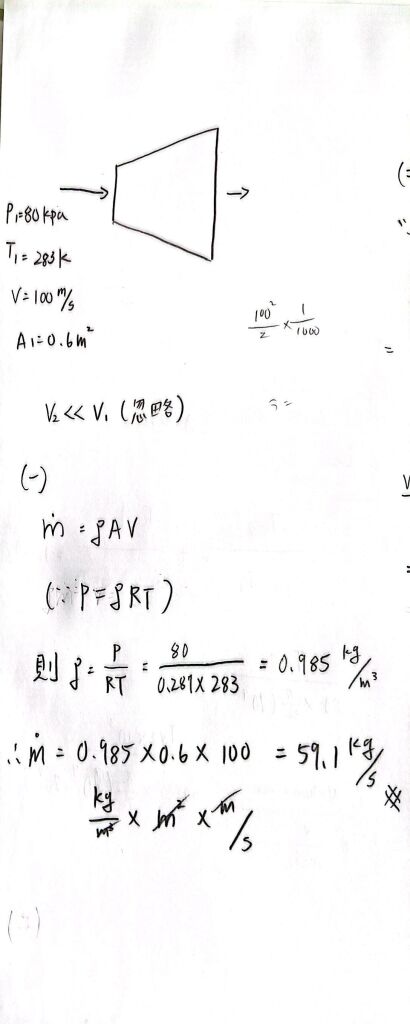 P₁=80kpa
T₁=283k
V=100 m/s
A₁=0.6m²
100²/2 × 1/1000
V₂<<V₁ (忽略)
(一)
ṁ = ρAV
(∵ P=ρRT)
則 ρ= P/RT = 80/0.287×283 = 0.985 kg/m³
∴ṁ = 0.985×0.6×100 = 59.1 kg/s
kg/m³ × m² × m/s
(二)